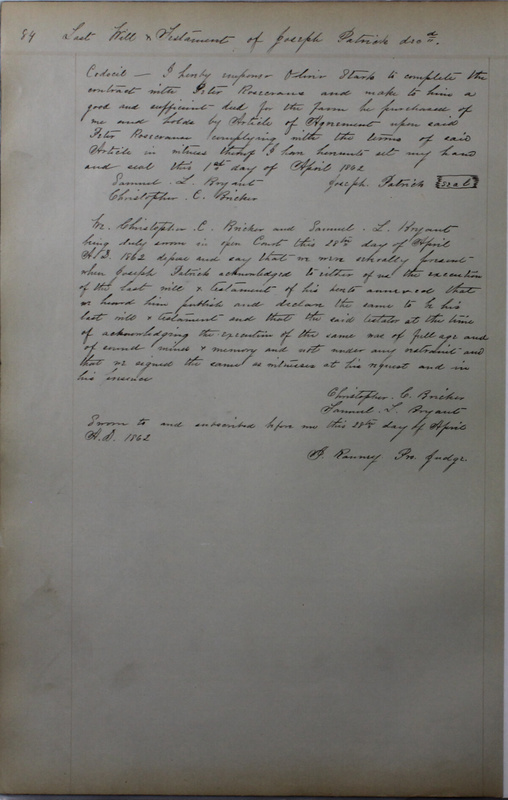 84 Last Will & Testament of Joseph Patrick decd.
Codocil — I hereby empower Oliver Stark to complete the
contract with Peter Rosecrans and make to him a
good and sufficient deed for the farm he purchased of
me and holds by Article of Agreement upon said
Peter Rosecrans complying with the terms of said
Article in witness thereof I have hereunto set my hand
and seal this 1st day of April 1862
Samuel. L. Bryant Joseph. Patrick seal
Christopher. C. Bricker
We. Christopher. C. Bricker and Samuel. L. Bryant
being duly sworn in open Court this 28th day of April
A.D. 1862 depose and say that we were severally present
when Joseph Patrick acknowledged to either of us the execution
of the last will & testament of his hereto annexed that
we heard him publish and declare the same to be his
last will & testament and that the said testator at the time
of acknowledging the execution of the same was of full age and
of sound mind & memory and not under any restraint and
that we signed the same as witnesses at his request and in
his presence
Christopher. C. Bricker
Samuel. L. Bryant
Sworn to and subscribed before me this 28th day of April
A.D. 1862
Ranney Pro. Judge